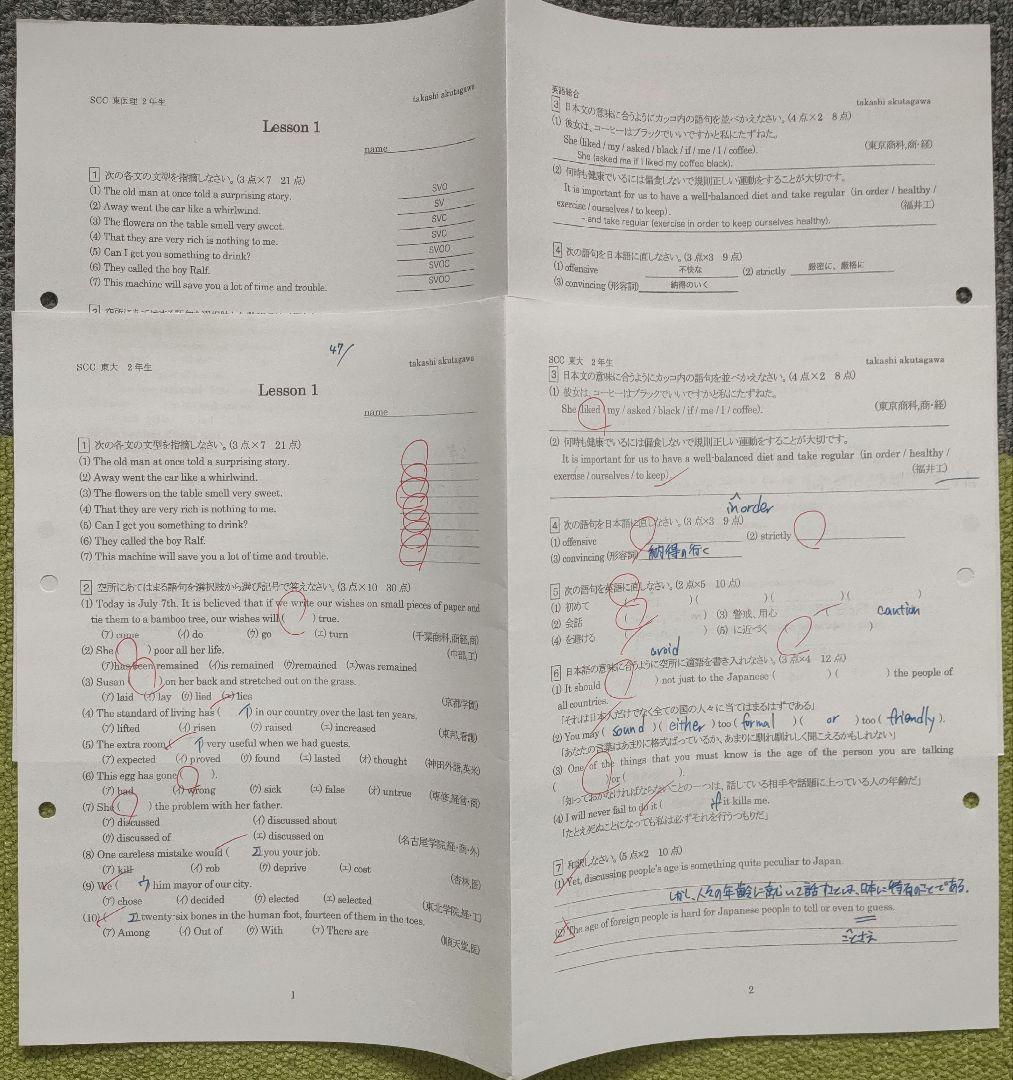 SCC 東医理 2年生
takashi akutagawa
Lesson 1
name
1 次の各文の文型を指摘しなさい。(3点×7 21点)
(1) The old man at once told a surprising story. SVO
(2) Away went the car like a whirlwind. SV
(3) The flowers on the table smell very sweet. SVC
(4) That they are very rich is nothing to me. SVC
(5) Can I get you something to drink? SVOO
(6) They called the boy Ralf. SVOC
(7) This machine will save you a lot of time and trouble. SVOO
英語総合
takashi akutagawa
3 日本文の意味に合うようにカッコ内の語句を並べかえなさい。(4点×2 8点)
(1) 彼女は、コーヒーはブラックでいいですかと私にたずねた。
She (liked / my / asked / black / if / me / I / coffee). (東京商科,商・経)
She (asked me if I liked my coffee black).
(2) 何時も健康でいるには偏食しないで規則正しい運動をすることが大切です。
It is important for us to have a well-balanced diet and take regular (in order / healthy /
exercise / ourselves / to keep). (福井工)
- and take regular (exercise in order to keep ourselves healthy).
4 次の語句を日本語に直しなさい。(3点×3 9点)
(1) offensive 不快な (2) strictly 厳密に、厳格に
(3) convincing (形容詞) 納得のいく
SCC 東大 2年生
47/
takashi akutagawa
Lesson 1
name
1 次の各文の文型を指摘しなさい。(3点×7 21点)
(1) The old man at once told a surprising story.
(2) Away went the car like a whirlwind.
(3) The flowers on the table smell very sweet.
(4) That they are very rich is nothing to me.
(5) Can I get you something to drink?
(6) They called the boy Ralf.
(7) This machine will save you a lot of time and trouble.
2 空所にあてはまる語句を選択肢から選び記号で答えなさい。(3点×10 30点)
(1) Today is July 7th. It is believed that if we write our wishes on small pieces of paper and
tie them to a bamboo tree, our wishes will ( ) true.
(ア) come (イ) do (ウ) go (エ) turn (千葉商科,商経,商)
(2) She ( ) poor all her life. (中部,工)
(ア)has been remained (イ)is remained (ウ)remained (エ)was remained
(3) Susan ( ) on her back and stretched out on the grass.
(ア) laid (イ) lay (ウ) lied (エ) lies (京都学園)
(4) The standard of living has ( イ) in our country over the last ten years.
(ア) lifted (イ) risen (ウ) raised (エ) increased (東邦,看護)
(5) The extra room ( イ) very useful when we had guests.
(ア) expected (イ) proved (ウ) found (エ) lasted (オ) thought (神田外語,英米)
(6) This egg has gone ( ).
(ア) bad (イ) wrong (ウ) sick (エ) false (オ) untrue (専修,経営・商)
(7) She ( ) the problem with her father.
(ア) discussed (イ) discussed about
(ウ) discussed of (エ) discussed on (名古屋学院,経・商・外)
(8) One careless mistake would ( エ) you your job.
(ア) kill (イ) rob (ウ) deprive (エ) cost (杏林,医)
(9) We ( ウ) him mayor of our city.
(ア) chose (イ) decided (ウ) elected (エ) selected (東北学院,経・工)
(10) ( エ) twenty-six bones in the human foot, fourteen of them in the toes.
(ア) Among (イ) Out of (ウ) With (エ) There are (順天堂,医)
1
SCC 東大 2年生
takashi akutagawa
3 日本文の意味に合うようにカッコ内の語句を並べかえなさい。(4点×2 8点)
(1) 彼女は、コーヒーはブラックでいいですかと私にたずねた。
She (liked / my / asked / black / if / me / I / coffee). (東京商科,商・経)
(2) 何時も健康でいるには偏食しないで規則正しい運動をすることが大切です。
It is important for us to have a well-balanced diet and take regular (in order / healthy /
exercise / ourselves / to keep). (福井工)
in order
4 次の語句を日本語に直しなさい。(3点×3 9点)
(1) offensive (2) strictly
(3) convincing (形容詞) 納得の行く
5 次の語句を英語に直しなさい。(2点×5 10点)
(1) 初めて ( )( )( )( )
(2) 会話 ( ) (3) 警戒、用心 caution
(4) を避ける avoid ) (5) に近づく
6 日本語の意味に合うように空所に適語を書き入れなさい。(3点×4 12点)
(1) It should ( ) not just to the Japanese ( )( ) the people of
all countries.
「それは日本人だけでなく全ての国の人々に当てはまるはずである」
(2) You may ( sound )( either ) too ( formal )( or ) too ( friendly ).
「あなたの言葉はあまりに格式ばっているか、あまりに馴れ馴れしく聞こえるかもしれない」
(3) One of the things that you must know is the age of the person you are talking
( ) or ( ).
「知っておかなければならないことの一つは、話している相手や話題に上っている人の年齢だ」
(4) I will never fail to do it ( if it kills me.
「たとえ死ぬことになっても私は必ずそれを行うつもりだ」
7 和訳しなさい。(5点×2 10点)
(1) Yet, discussing people's age is something quite peculiar to Japan.
しかし、人々の年齢に関して話すことは、日本に特有のことである。
(2) The age of foreign people is hard for Japanese people to tell or even to guess.
ことさえ
2